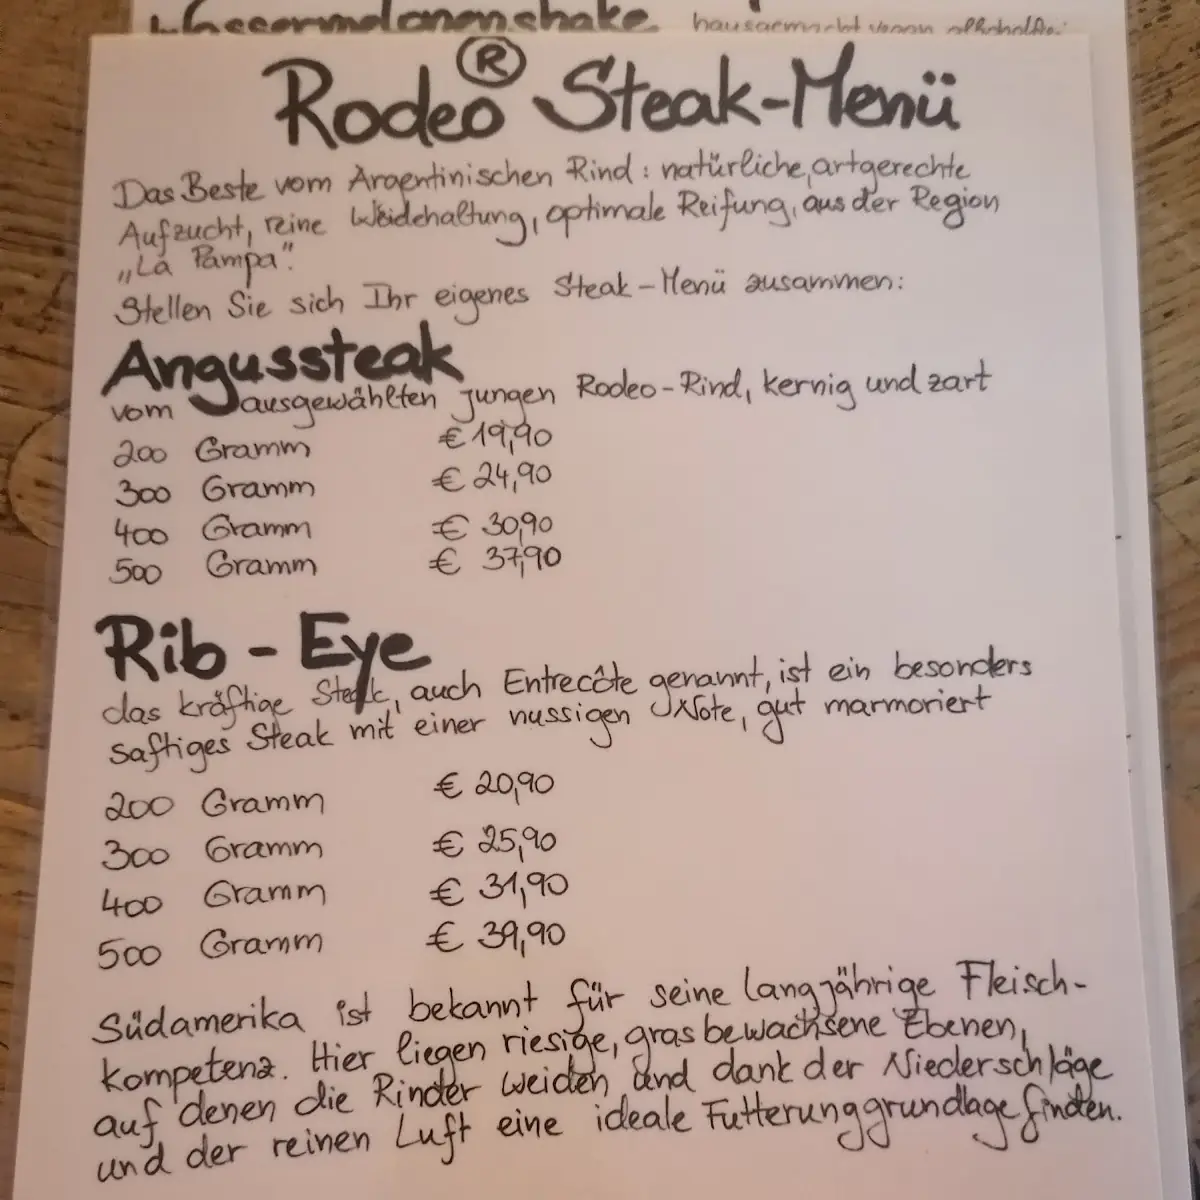 Wassermelonenshake hausgemacht vegan
Rodeo® Steak-Menü
Das Beste vom Argentinischen Rind: natürliche, artgerechte
Aufzucht, reine Weidehaltung, optimale Reifung, aus der Region
„La Pampa".
Stellen Sie sich Ihr eigenes Steak-Menü zusammen:
Angussteak
vom ausgewählten jungen Rodeo-Rind, kernig und zart
200 Gramm € 19,90
300 Gramm € 24,90
400 Gramm € 30,90
500 Gramm € 37,90
Rib-Eye
das kräftige Steak, auch Entrecôte genannt, ist ein besonders
saftiges Steak mit einer nussigen Note, gut marmoriert
200 Gramm € 20,90
300 Gramm € 25,90
400 Gramm € 31,90
500 Gramm € 39,90
Südamerika ist bekannt für seine langjährige Fleisch-
kompetenz. Hier liegen riesige, grasbewachsene Ebenen,
auf denen die Rinder weiden und dank der Niederschläge
und der reinen Luft eine ideale Futterunggrundlage finden.